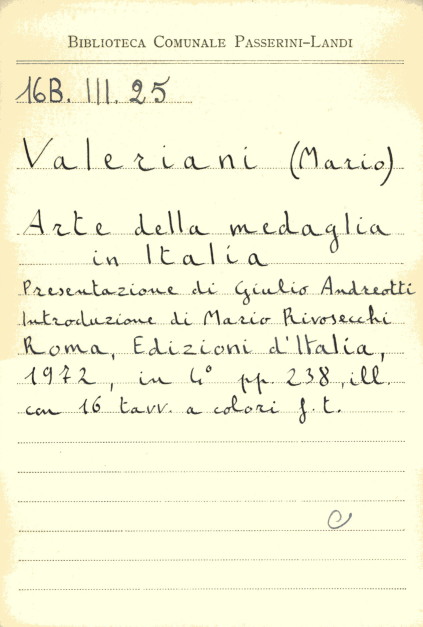 BIBLIOTECA COMUNALE PASSERINI-LANDI
16B. III. 25
Valeriani (Mario)
Arte della medaglia
in Italia
Presentazione di Giulio Andreotti
Introduzione di Mario Rivosecchi
Roma, Edizioni d'Italia,
1972, in 4° pp. 238, ill.
con 16 tavv. a colori f.t.
C